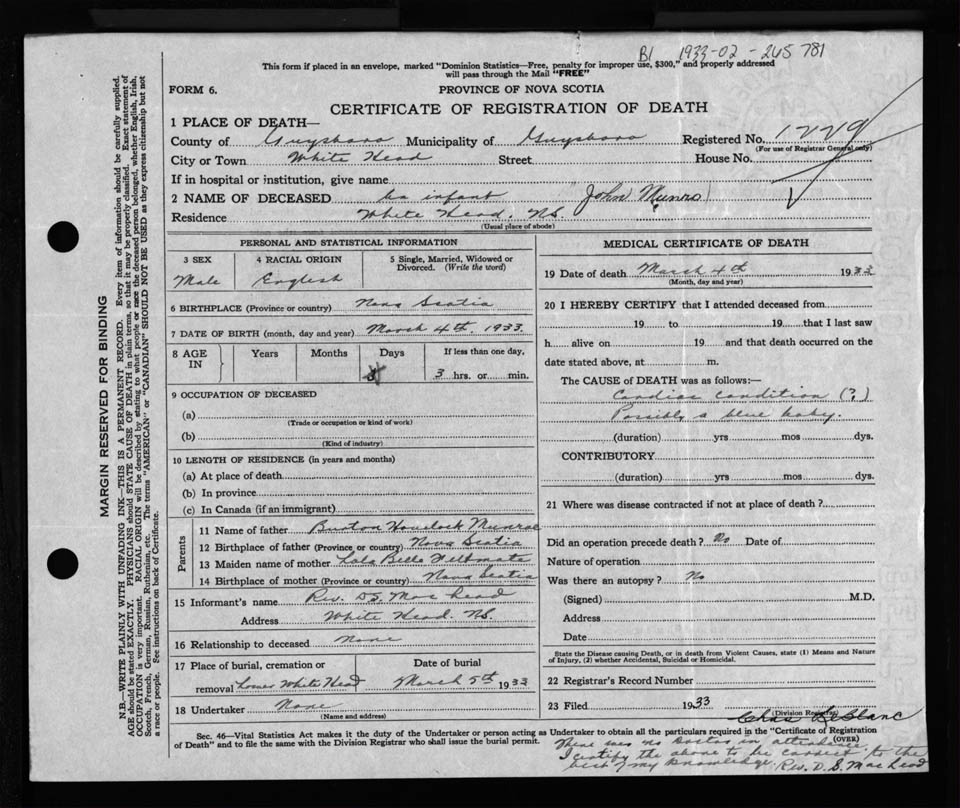 B1 1933-02-245 781
This form if placed in an envelope, marked "Dominion Statistics—Free, penalty for improper use, $300," and properly addressed
will pass through the Mail "FREE"
FORM 6.
PROVINCE OF NOVA SCOTIA
CERTIFICATE OF REGISTRATION OF DEATH
1 PLACE OF DEATH—
County of Guysboro Municipality of Guysboro Registered No. 1229
(For use of Registrar General only)
City or Town White Head Street House No.
If in hospital or institution, give name
2 NAME OF DECEASED infant John Munro
Residence White Head. N.S.
(Usual place of abode)
PERSONAL AND STATISTICAL INFORMATION
3 SEX 4 RACIAL ORIGIN 5 Single, Married, Widowed or Divorced. (Write the word)
Male English
6 BIRTHPLACE (Province or country) Nova Scotia
7 DATE OF BIRTH (month, day and year) March 4th. 1933.
8 AGE IN Years Months Days If less than one day,
3 hrs. or min.
9 OCCUPATION OF DECEASED
(a)
(Trade or occupation or kind of work)
(b)
(Kind of industry)
10 LENGTH OF RESIDENCE (in years and months)
(a) At place of death
(b) In province
(c) In Canada (if an immigrant)
Parents
11 Name of father Burton Havelock Munroe
12 Birthplace of father (Province or country) Nova Scotia
13 Maiden name of mother Lola Bell Feltmate
14 Birthplace of mother (Province or country) Nova Scotia
15 Informant's name Rev. D.S. MacLeod
Address White Head. N.S.
16 Relationship to deceased None
17 Place of burial, cremation or removal Lower White Head
Date of burial March 5th 1933
18 Undertaker None
(Name and address)
MEDICAL CERTIFICATE OF DEATH
19 Date of death March 4th 1933
(Month, day and year)
20 I HEREBY CERTIFY that I attended deceased from
19 to 19 that I last saw
h alive on 19 and that death occurred on the
date stated above, at m.
The CAUSE OF DEATH was as follows:—
Cardiac condition (?)
Possibly a blue baby.
(duration) yrs mos dys.
CONTRIBUTORY
(duration) yrs mos dys.
21 Where was disease contracted if not at place of death?
Did an operation precede death? No Date of
Nature of operation
Was there an autopsy? No
(Signed) M.D.
Address
Date
State the Disease causing Death, or in death from Violent Causes, state (1) Means and Nature
of Injury, (2) whether Accidental, Suicidal or Homicidal.
22 Registrar's Record Number
23 Filed 1933
Chas LeBlanc
(Division Registrar)
Sec. 46—Vital Statistics Act makes it the duty of the Undertaker or person acting as Undertaker to obtain all the particulars required in the "Certificate of Registration
of Death" and to file the same with the Division Registrar who shall issue the burial permit.
(OVER)
There was no Doctor in attendance
I certify the above to be correct to the
best of my knowledge. Rev. D. S. MacLeod
MARGIN RESERVED FOR BINDING
N.B.—WRITE PLAINLY WITH UNFADING INK—THIS IS A PERMANENT RECORD. Every item of information should be carefully supplied.
AGE should be stated EXACTLY. PHYSICIANS should STATE CAUSE OF DEATH in plain terms, so that it may be properly classified. Exact statement of
OCCUPATION is very important. RACIAL ORIGIN will be described by stating to what people or race the deceased person belonged, whether English, Irish,
Scotch, French, German, Russian, Ruthenian, etc. The terms "AMERICAN" or "CANADIAN" SHOULD NOT BE USED as they express citizenship but not
a race or people. See instructions on back of Certificate.